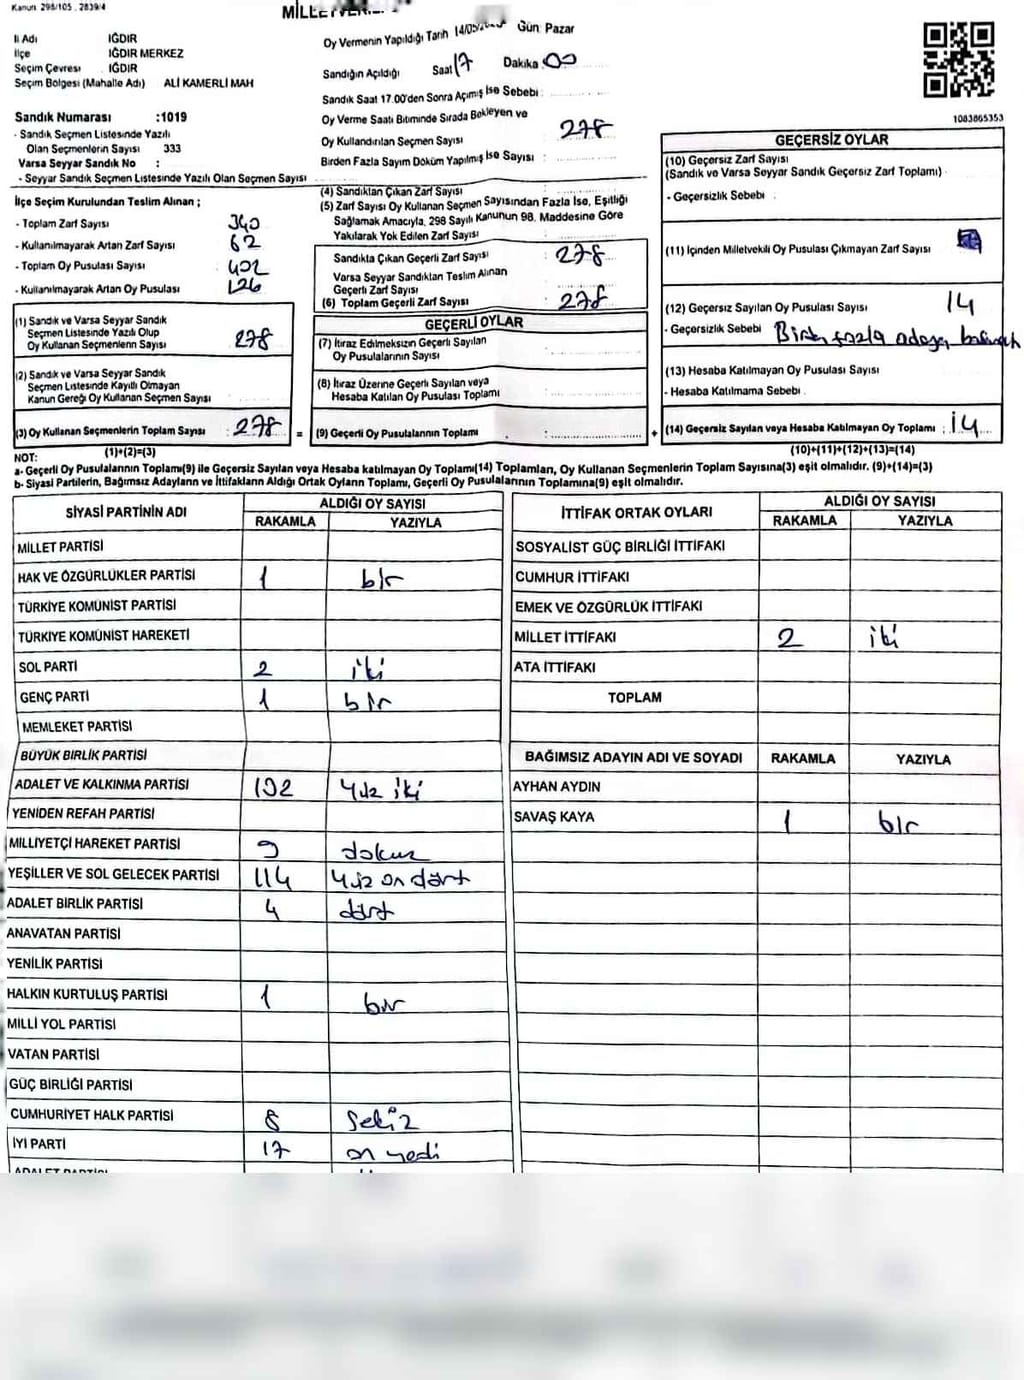 Kanun 298/105 , 2839/4
İl Adı IĞDIR
İlçe IĞDIR MERKEZ
Seçim Çevresi IĞDIR
Seçim Bölgesi (Mahalle Adı) ALİ KAMERLİ MAH
Sandık Numarası :1019
- Sandık Seçmen Listesinde Yazılı
Olan Seçmenlerin Sayısı 333
Varsa Seyyar Sandık No :
- Seyyar Sandık Seçmen Listesinde Yazılı Olan Seçmen Sayısı
Oy Vermenin Yapıldığı Tarih 14/05/ Gün: Pazar
Sandığın Açıldığı Saat 17 Dakika 00
Sandık Saat 17.00'den Sonra Açılmış İse Sebebi :
Oy Verme Saati Bitiminde Sırada Bekleyen ve
Oy Kullandırılan Seçmen Sayısı : 278
Birden Fazla Sayım Döküm Yapılmış İse Sayısı :
1083865353
İlçe Seçim Kurulundan Teslim Alınan ;
- Toplam Zarf Sayısı 340
- Kullanılmayarak Artan Zarf Sayısı 62
- Toplam Oy Pusulası Sayısı 402
- Kullanılmayarak Artan Oy Pusulası 126
(1) Sandık ve Varsa Seyyar Sandık
Seçmen Listesinde Yazılı Olup
Oy Kullanan Seçmenlerin Sayısı 278
(2) Sandık ve Varsa Seyyar Sandık
Seçmen Listesinde Kayıtlı Olmayan
Kanun Gereği Oy Kullanan Seçmen Sayısı
(3) Oy Kullanan Seçmenlerin Toplam Sayısı : 278 =
(1)+(2)=(3)
(4) Sandıktan Çıkan Zarf Sayısı :
(5) Zarf Sayısı Oy Kullanan Seçmen Sayısından Fazla İse, Eşitliği
Sağlamak Amacıyla, 298 Sayılı Kanunun 98. Maddesine Göre
Yakılarak Yok Edilen Zarf Sayısı :
Sandıkta Çıkan Geçerli Zarf Sayısı : 278
Varsa Seyyar Sandıktan Teslim Alınan
Geçerli Zarf Sayısı :
(6) Toplam Geçerli Zarf Sayısı : 278
GEÇERLİ OYLAR
(7) İtiraz Edilmeksizin Geçerli Sayılan
Oy Pusulalarının Sayısı :
(8) İtiraz Üzerine Geçerli Sayılan veya
Hesaba Katılan Oy Pusulası Toplamı :
(9) Geçerli Oy Pusulalarının Toplamı : +
GEÇERSİZ OYLAR
(10) Geçersiz Zarf Sayısı
(Sandık ve Varsa Seyyar Sandık Geçersiz Zarf Toplamı) :
- Geçersizlik Sebebi :
(11) İçinden Milletvekili Oy Pusulası Çıkmayan Zarf Sayısı :
(12) Geçersiz Sayılan Oy Pusulası Sayısı : 14
- Geçersizlik Sebebi fazla adaya
(13) Hesaba Katılmayan Oy Pusulası Sayısı :
- Hesaba Katılmama Sebebi :
(14) Geçersiz Sayılan veya Hesaba Katılmayan Oy Toplamı : 14
(10)+(11)+(12)+(13)=(14)
NOT:
a- Geçerli Oy Pusulalarının Toplamı(9) ile Geçersiz Sayılan veya Hesaba katılmayan Oy Toplamı(14) Toplamları, Oy Kullanan Seçmenlerin Toplam Sayısına(3) eşit olmalıdır. (9)+(14)=(3)
b- Siyasi Partilerin, Bağımsız Adayların ve İttifakların Aldığı Ortak Oyların Toplamı, Geçerli Oy Pusulalarının Toplamına(9) eşit olmalıdır.
SİYASİ PARTİNİN ADI ALDIĞI OY SAYISI
RAKAMLA YAZIYLA
MİLLET PARTİSİ
HAK VE ÖZGÜRLÜKLER PARTİSİ 1 bir
TÜRKİYE KOMÜNİST PARTİSİ
TÜRKİYE KOMÜNİST HAREKETİ
SOL PARTİ 2 iki
GENÇ PARTİ 1 bir
MEMLEKET PARTİSİ
BÜYÜK BİRLİK PARTİSİ
ADALET VE KALKINMA PARTİSİ 102 yüz iki
YENİDEN REFAH PARTİSİ
MİLLİYETÇİ HAREKET PARTİSİ 9 dokuz
YEŞİLLER VE SOL GELECEK PARTİSİ 114 yüz on dört
ADALET BİRLİK PARTİSİ 4 dört
ANAVATAN PARTİSİ
YENİLİK PARTİSİ
HALKIN KURTULUŞ PARTİSİ 1 bir
MİLLİ YOL PARTİSİ
VATAN PARTİSİ
GÜÇ BİRLİĞİ PARTİSİ
CUMHURİYET HALK PARTİSİ 8 sekiz
İYİ PARTİ 17 on yedi
İTTİFAK ORTAK OYLARI ALDIĞI OY SAYISI
RAKAMLA YAZIYLA
SOSYALİST GÜÇ BİRLİĞİ İTTİFAKI
CUMHUR İTTİFAKI
EMEK VE ÖZGÜRLÜK İTTİFAKI
MİLLET İTTİFAKI 2 iki
ATA İTTİFAKI
TOPLAM
BAĞIMSIZ ADAYIN ADI VE SOYADI RAKAMLA YAZIYLA
AYHAN AYDIN
SAVAŞ KAYA 1 bir